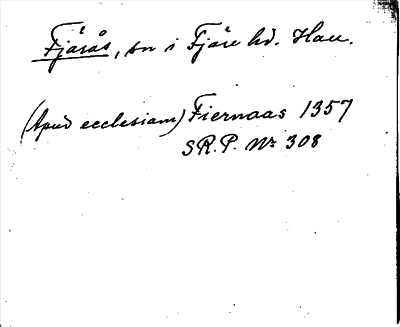 Fjärås, sn i Fjäre hd. Hall.
(Apud ecclesiam) Fiernaas 1357
SRP. Nr 308